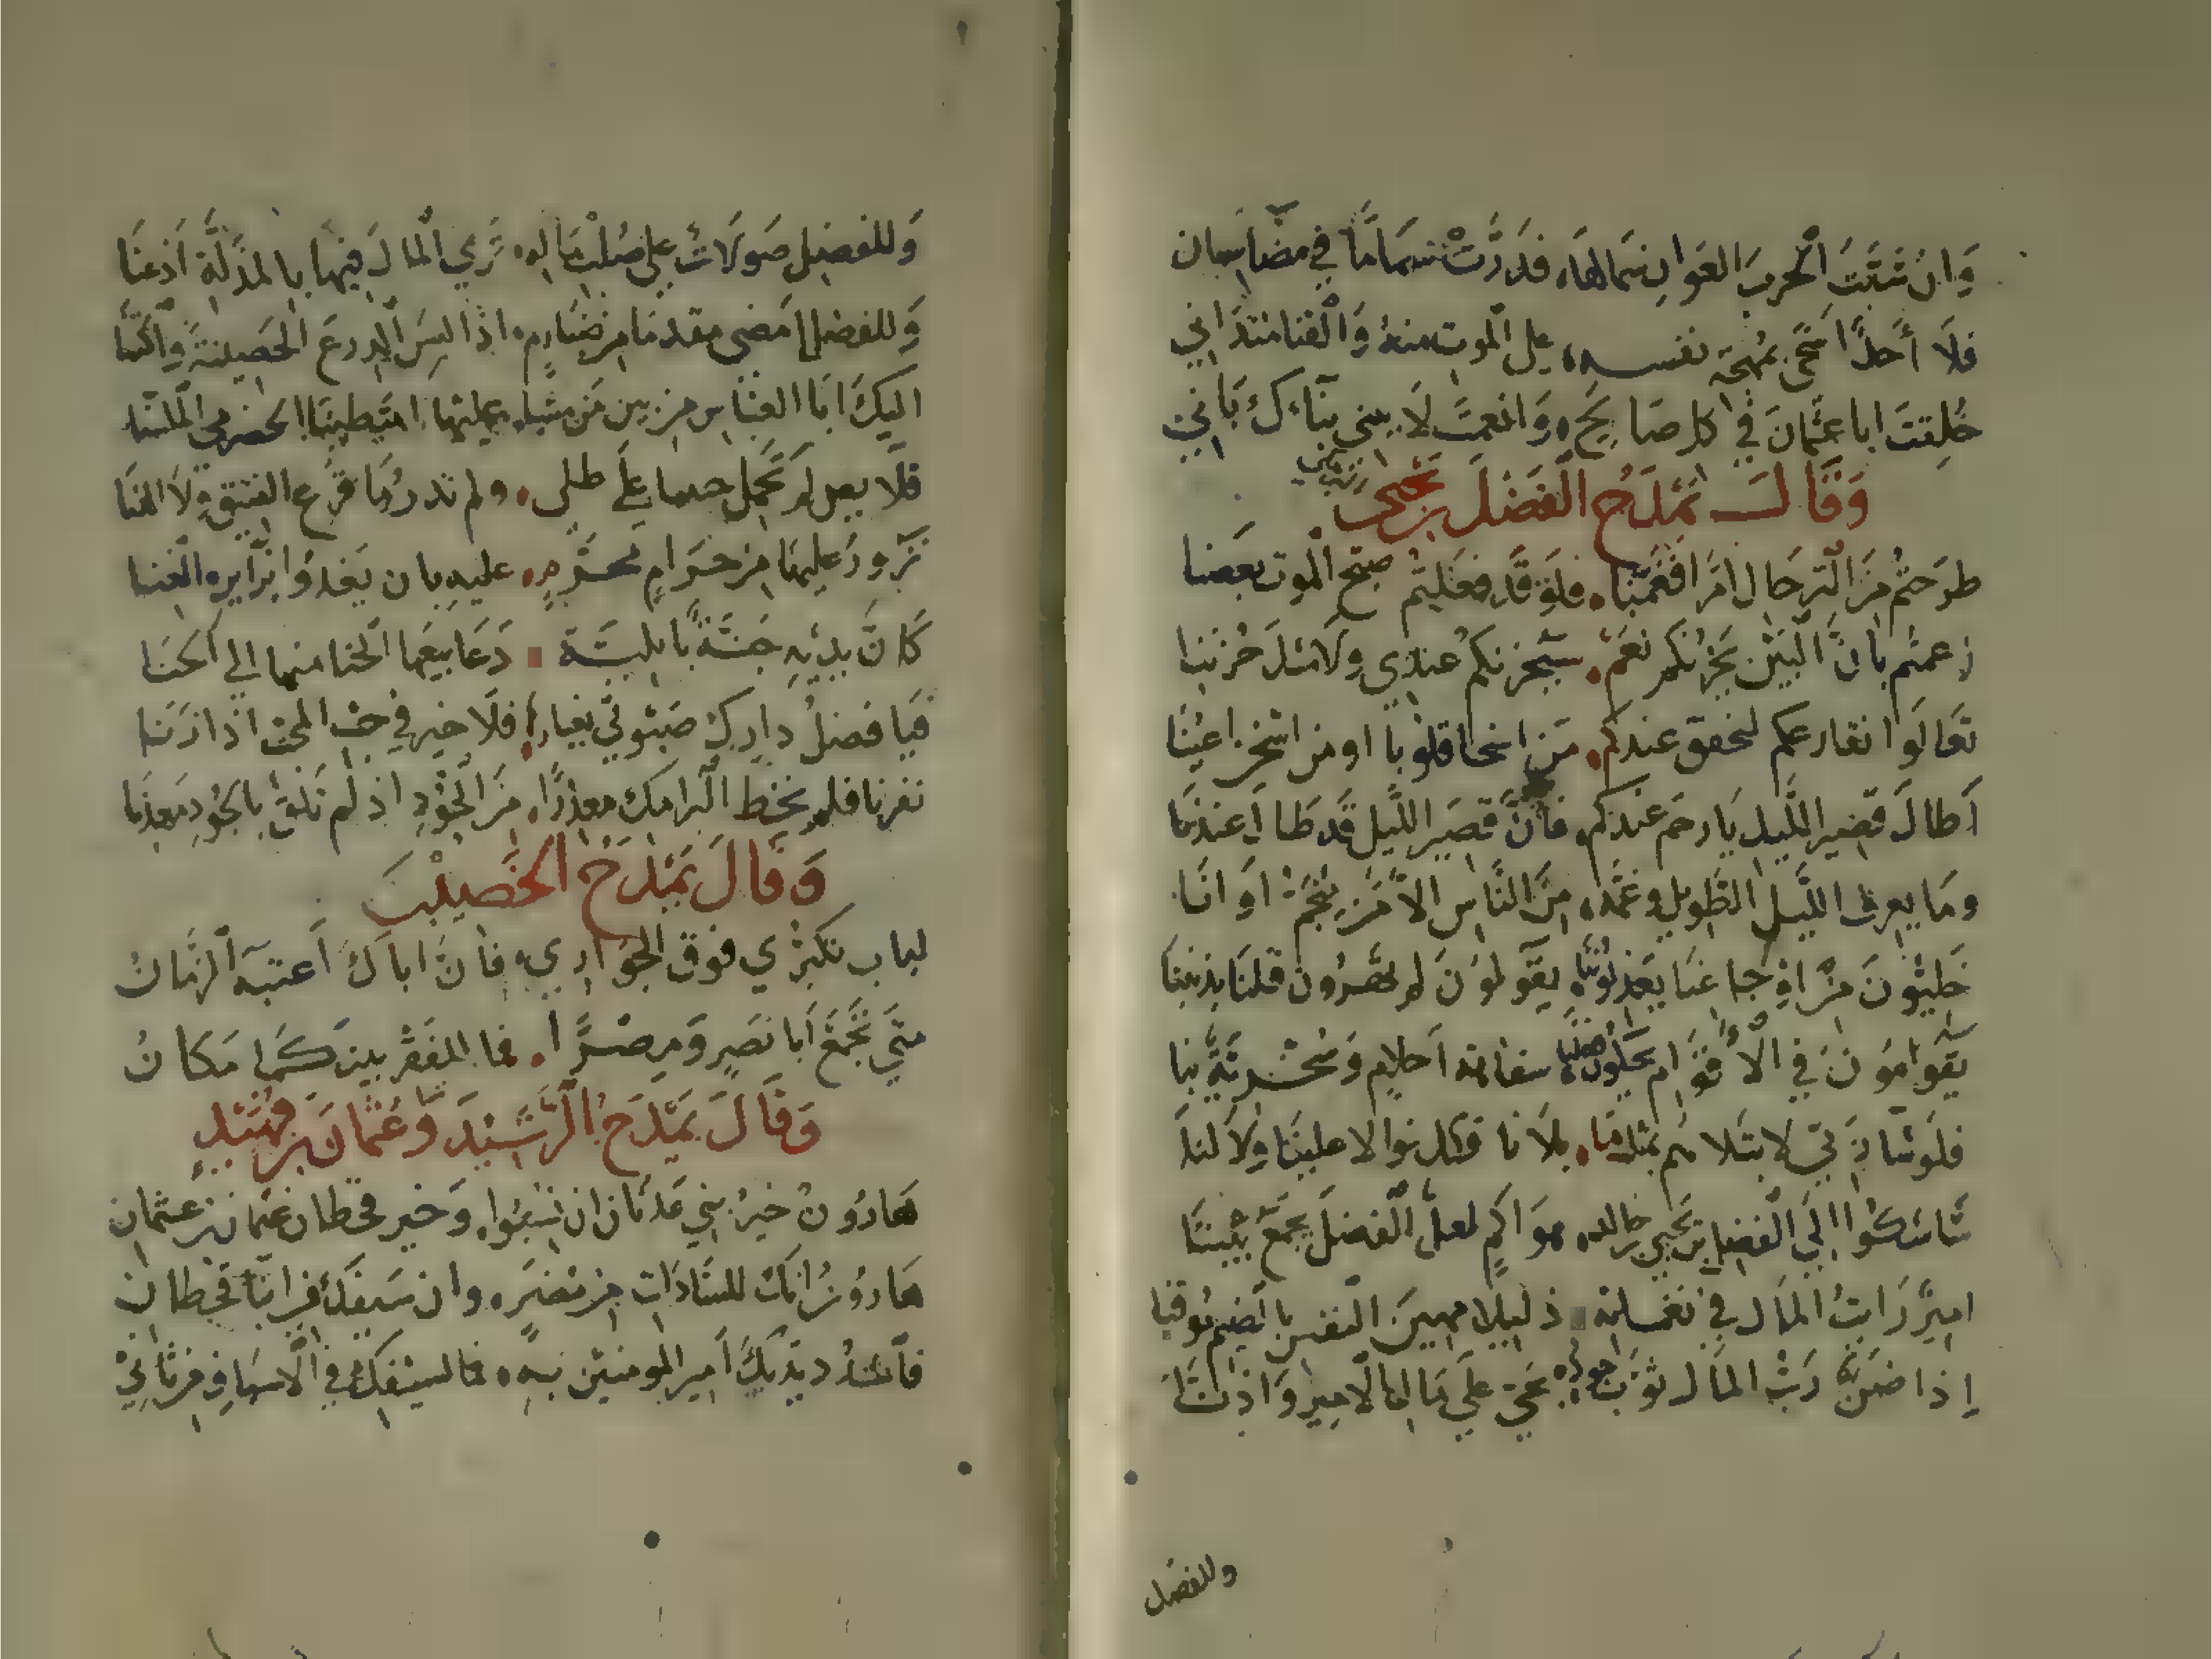 وَان شَبَّتِ الْحَربَ العَوانِ سَمَا لهَا، فدَرَّتْ سمَامًا في مضَا سنان
فلَا أَحدًا أسْخَى بمُهجَة نفســه، على الموت منهُ وَالْقنا متدَاني
خُلِقتَ ابا عثمانَ في كل صَالحٍ، وَانعمتَ لَا يبني بنَاءكَ بَاني
وَقَالَ يَمْدَحُ الْفَضْلَ بن يَحْيى
طرَحتم منَ التّرحَال امرًا فغَمَّنا، فلَو قَد فعَلتم صبّح الموت بَعضَنا
زعمتم بانَّ الْبَيْنَ يَحْزُنكم نَعَم، سيحزنكم عندي ولا مثلَ حُزننا
تعَالَوا نقارعكم لنحقق عندكم، مَن اشجا قلوبا او من اسخن اعينَا
أَطالَ قصير اللّيل يَا رحمَ عندكم، فانَّ قصيَر اللّيل قَد طَال عندنَا
ومَا يعرف اللَّيلَ الطَّويلَ وغمَّه، منَ النَّاس الاَّ مَن يُنَجِّمُ اوَ انَا
خَليُّونَ منْ اوْجاعنَا يَعذلُونَنا، يقَولوُنَ لم تهوَون قلنَا بذنبنَا
يَقومَوُنَ في الْأَقوَام يحكون فعلنا، سفاهة احلامٍ وَسُخْريَّةً بنا
فلَو شَا رَبّي لابتَلاهُم بمثل مَا، بلَانا فكانوا لا علينَا ولَا لنَا
سَاشكُوا اِلَى الْفضل بن يَحيى بن خالد، هوَاكم لعلَّ الْفَضلَ يَجمعُ بَيْننَا
اميرٌ رَايتُ المَال في نغمــاته، ذليلا مهينَ النفس بالضيم مُوقنا
إذا ضنَّ رَبُّ المال ثوَّب جودُه، بحَيَّ عَلَى مَال الامير وَاذّنَا
وللفضل
وَللفضل صَولَاتٌ على صُلبِ مَاله، تَرى الْمَالَ فيها بالمذَلَّةِ اَذعنَا
وَللفضل اَمضى مقدمًا من ضبَارِم، اذا لبسَ الدِرعَ الحَصينةَ وَاكتنَا
اليكَ ابَا العبَّاس من بين مَن مشا، عليهَا امتَطينَا الحضرميَّ الملسّنا
قلَائص لم تَحمل حنينا علَى طلى، ولم تدر مَا قرع الفنيق ولَا الهنَا
نزور عليهَا من حَرَامٍ محَرَّمٍ، عليه بان يَغدُو بزَايره الغنا
كَانَّ لديه جَنَّةً بابليَّــة، دَعَا ينعها الجنا منها الى الجَنَا
فيَا فضلُ دارِك صَبوتي بغياثٍ، فلَا خير في حبّ المحبّ اذا زَنَا
وَقَالَ يَمْدَحُ الخَصيبَ
لباب تكبّري فوق الجوَاري، فانَّ اباكَ اَعتبَه الزمَانُ
متَى تَجمَعْ اَبا نصَرٍ وَمِصْرًا، فما للفَقر بينهكمَا مَكانُ
وَقَالَ يَمْدَحُ الرَّشيدَ وَعُثمانَ بن نُهَيْكٍ
هَارُونُ خيرُ بني عَدنَان ان نُسِبُوا، وَخير قحطان عثمَان بن عثمان
هَارونُ انمَاك للسَّادَات من مُضَرٍ، وان سَيفَكَ من ابنَا قحطان
فاشدُد يَدَيكَ اَمير المومنين بــه، فما لسيْفكَ في الْاسيَاف من ثاني